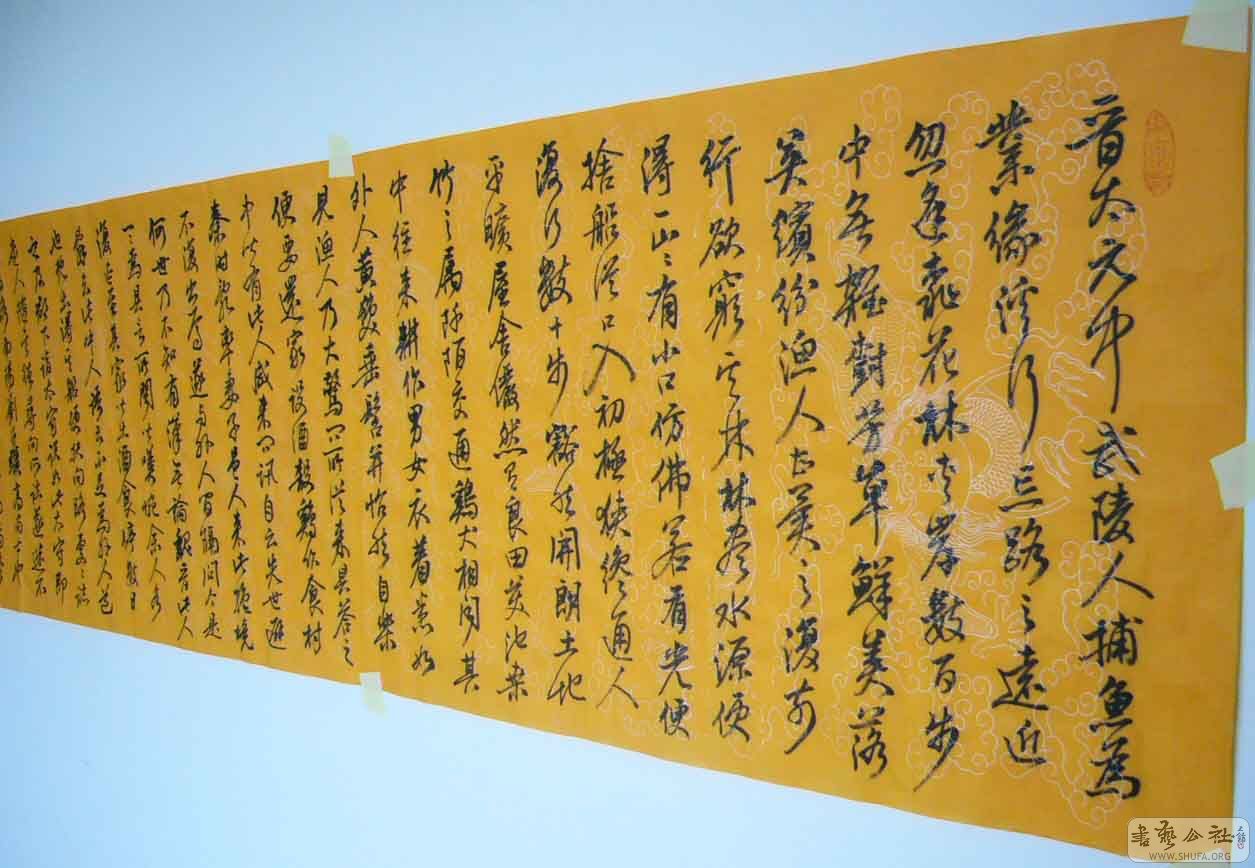 晉太元中武陵人捕魚為
業緣溪行忘路之遠近
忽逢桃花林夾岸數百步
中無雜樹芳草鮮美落
英繽紛漁人甚異之復前
行欲窮其林林盡水源便
得一山〻有小口仿佛若有光便
捨船從口入初極狹纔通人
復行數十步豁然開朗土地
平曠屋舍儼然有良田美池桑
竹之屬阡陌交通鷄犬相聞其
中往來耕作男女衣着悉如
外人黃髮垂髫并怡然自樂
見漁人乃大驚問所從來具答之
便要還家設酒殺鷄作食村
中聞有此人咸來問訊自云先世避
秦時亂率妻子邑人來此絕境
不復出焉遂與外人間隔問今是
何世乃不知有漢無論魏晉此人
一一為具言所聞皆嘆惋余人各
復延至其家皆出酒食停數日
辭去此中人語云不足為外人道
也既出得其船便扶向路處〻誌
之及郡下詣太守說如此太守即
遣人隨其往尋向所誌遂迷不
路南陽劉子驥高尚士也
書藝公社
WWW.SHUFA.ORG